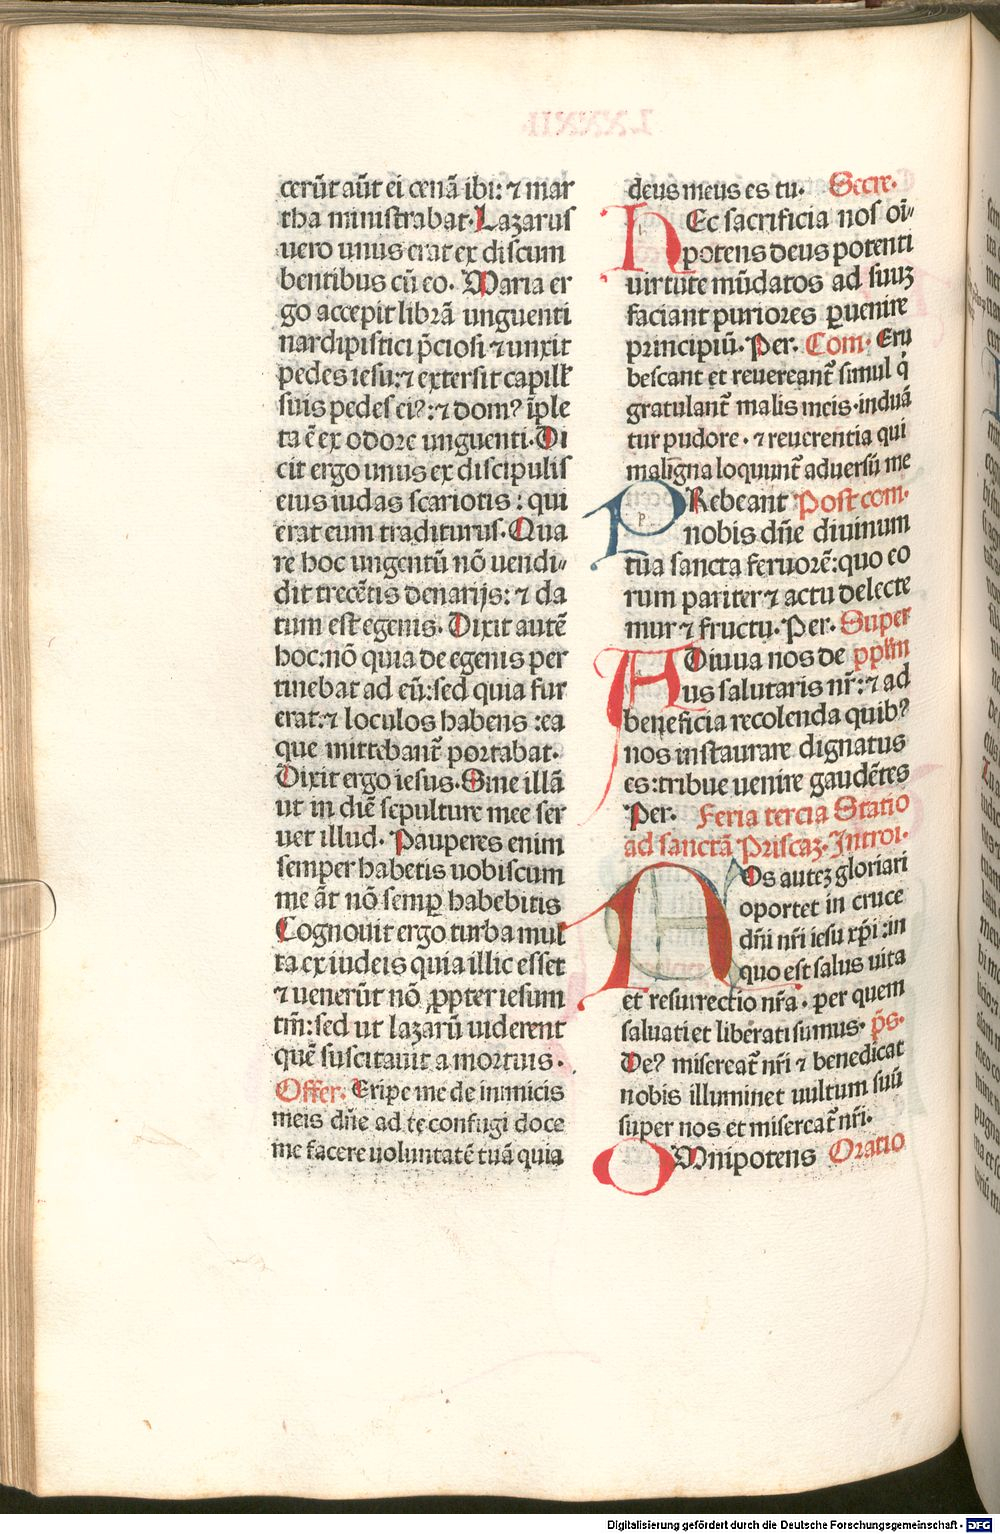 cerūt aūt ei cenā ibi: ⁊ mar
tha ministrabat. Lazarus
uero unus erat ex discum
bentibus cū eo. Maria er
go accepit librā unguenti
nardipistici p̄ciosi ⁊ unxit
pedes iesu: ⁊ extersit capill'
suis pedes ei⁹: ⁊ dom⁹ īple
ta ē ex odore unguenti. Di
cit ergo unus ex discipulis
eius iudas scariotis: qui
erat eum traditurus. Qua
re hoc ungentū nō uendi⸗
dit trecētis denarijs: ⁊ da
tum est egenis. Dixit autē
hoc: nō quia de egenis per
tinebat ad eū: sed quia fur
erat: ⁊ loculos habens: ea
que mittebant̄ portabat.
Dixit ergo iesus. Sine illā
ut in diē sepulture mee ser
uet illud. Pauperes enim
semper habetis uobiscum
me āt nō semꝑ habebitis
Cognouit ergo turba mul
ta ex iudeis quia illic esset
⁊ uenerūt nō ꝓpter iesum
tm̄: sed ut lazarū uiderent
quē suscitauit a mortuis.
Offer. Eripe me de inimicis
meis dn̄e ad te confugi doce
me facere uoluntatē tuā quia
deus meus es tu. Secre.
HEc sacrificia nos oī⸗
potens deus potenti
uirtute mūdatos ad suuꝫ
faciant puriores ꝑuenire
principiū. Per. Com. Eru
bescant et reuereant̄ simul q̇
gratulant̄ malis meis. induā
tur pudore. ⁊ reuerentia qui
maligna loquunt̄ aduersū me
PRebeant Post com.
nobis dn̄e diuinum
tua sancta feruorē: quo eo
rum pariter ⁊ actu delecte
mur ⁊ fructu. Per. Super
ADiuua nos de pplm̄
us salutaris nr̄: ⁊ ad
beneficia recolenda quib⁹
nos instaurare dignatus
es: tribue uenire gaudētes
Per. Feria tercia Statio
ad sanctā Priscaꝫ. Introi.
NOs auteꝫ gloriari
oportet in cruce
dn̄i nr̄i iesu xp̄i: in
quo est salus uita
et resurrectio nr̄a. per quem
saluati et liberati sumus. ps̄.
De⁹ misereat̄ nr̄i ⁊ benedicat
nobis illuminet uultum suū
super nos et misereat̄ nr̄i.
OMnipotens Oratio
Digitalisierung gefördert durch die Deutsche Forschungsgemeinschaft - DFG